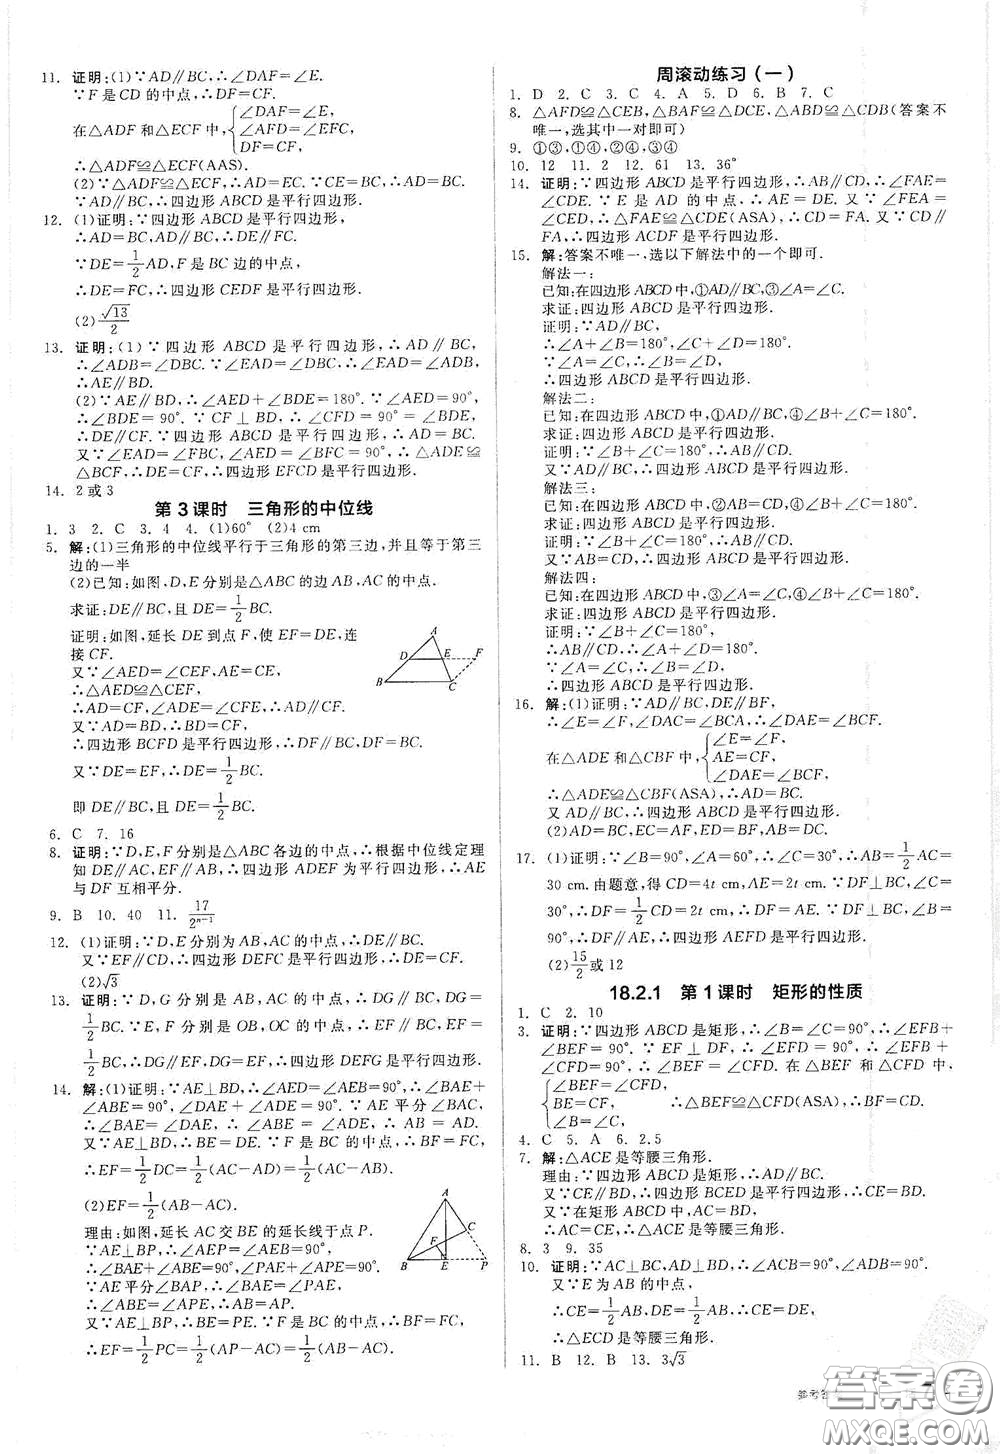 11. 证明:(1)∵AD∥BC,∴∠DAF=∠E.
∵F是CD的中点,∴DF=CF.
在△ADF和△ECF中,{∠DAF=∠E, ∠AFD=∠EFC, DF=CF.
∴△ADF≌△ECF(AAS).
(2)∵△ADF≌△ECF,∴AD=EC.∵CE=BC,∴AD=BC.
∵AD∥BC,∴四边形ABCD是平行四边形.
12. (1)证明:∵四边形ABCD是平行四边形,
∴AD=BC,AD∥BC,∴DE∥FC.
∵DE=1/2AD,F是BC边的中点,
∴DE=FC,∴四边形CEDF是平行四边形.
(2)√13/2
13. 证明:(1)∵四边形ABCD是平行四边形,∴AD∥BC,
∴∠ADB=∠DBC.∵∠EAD=∠DBC,∴∠EAD=∠ADB,
∴AE∥BD.
(2)∵AE∥BD,∴∠AED+∠BDE=180°.∵∠AED=90°,
∴∠BDE=90°.∵CF⊥BD,∴∠CFD=90°=∠BDE,
∴DE∥CF.∵四边形ABCD是平行四边形,∴AD=BC.
又∵∠EAD=∠FBC,∠AED=∠BFC=90°,∴△AED≌
△BCF,∴DE=CF,∴四边形EFCD是平行四边形.
14. 2或3
第3课时 三角形的中位线
1. 3 2. C 3. 4 4. (1)60° (2)4 cm
5. 解:(1)三角形的中位线平行于三角形的第三边,并且等于第三
边的一半
(2)已知:如图,D,E分别是△ABC的边AB,AC的中点.
求证:DE∥BC,且DE=1/2BC.
证明:如图,延长DE到点F,使EF=DE,连
接CF.
又∵∠AED=∠CEF,AE=CE,
∴△AED≌△CEF,
∴AD=CF,∠ADE=∠CFE,∴AD∥CF.
又∵AD=BD,∴BD=CF,
∴四边形BCFD是平行四边形,∴DF=BC.
又∵DE=EF,∴DE=1/2BC.
即DE∥BC,且DE=1/2BC.
A D E F B C
6. C 7. 16
8. 证明:∵D,E,F分别是△ABC各边的中点,∴根据中位线定理
知DE∥AC,EF∥AB,∴四边形ADEF为平行四边形,∴AE
与DF互相平分.
9. B 10. 40 11. 17/2ⁿ⁻¹
12. (1)证明:∵D,E分别为AB,AC的中点,∴DE∥BC.
又∵EF∥CD,∴四边形DEFC是平行四边形,∴DE=CF.
(2)√3
13. 证明:∵D,G分别是AB,AC的中点,∴DG∥BC,DG=
1/2BC.∵E,F分别是OB,OC的中点,∴EF∥BC,EF=
1/2BC,∴DG∥EF,DG=EF,∴四边形DEFG是平行四边形.
14. 解:(1)证明:∵AE⊥BD,∴∠AED=∠AEB=90°,∴∠BAE+
∠ABE=90°,∠DAE+∠ADE=90°.∵AE平分∠BAC,
∴∠BAE=∠DAE,∴∠ABE=∠ADE,∴AB=AD.
又∵AE⊥BD,∴BE=DE.∵F是BC的中点,∴BF=FC,
∴EF=1/2DC=1/2(AC-AD)=1/2(AC-AB).
(2)EF=1/2(AB-AC).
理由:如图,延长AC交BE的延长线于点P.
∵AE⊥BP,∴∠AEP=∠AEB=90°,
∴∠BAE+∠ABE=90°,∠PAE+∠APE=90°.
∵AE平分∠BAC,∴∠BAE=∠PAE,
∴∠ABE=∠APE,∴AB=AP.
又∵AE⊥BP,∴BE=PE.∵F是BC的中点,∴BF=FC,
∴EF=1/2PC=1/2(AP-AC)=1/2(AB-AC).
A C F B E P
周滚动练习(一)
1. D 2. C 3. C 4. A 5. D 6. B 7. C
8. △AFD≌△CEB,△BAF≌△DCE,△ABD≌△CDB(答案不
唯一,选其中一对即可)
9. ①③,①④,②④,③④
10. 12 11. 2 12. 61 13. 36°
14. 证明:∵四边形ABCD是平行四边形,∴AB∥CD,∴∠FAE=
∠CDE.∵E是AD的中点,∴AE=DE.又∵∠FEA=
∠CED,∴△FAE≌△CDE(ASA),∴CD=FA.又∵CD∥
FA,∴四边形ACDF是平行四边形.
15. 解:答案不唯一,选以下解法中的一个即可.
解法一:
已知:在四边形ABCD中,①AD∥BC,③∠A=∠C.
求证:四边形ABCD是平行四边形.
证明:∵AD∥BC,
∴∠A+∠B=180°,∠C+∠D=180°.
∵∠A=∠C,∴∠B=∠D,
∴四边形ABCD是平行四边形.
解法二:
已知:在四边形ABCD中,①AD∥BC,④∠B+∠C=180°.
求证:四边形ABCD是平行四边形.
证明:∵∠B+∠C=180°,∴AB∥CD.
又∵AD∥BC,∴四边形ABCD是平行四边形.
解法三:
已知:在四边形ABCD中,②AB=CD,④∠B+∠C=180°.
求证:四边形ABCD是平行四边形.
证明:∵∠B+∠C=180°,∴AB∥CD.
又∵AB=CD,∴四边形ABCD是平行四边形.
解法四:
已知:在四边形ABCD中,③∠A=∠C,④∠B+∠C=180°.
求证:四边形ABCD是平行四边形.
证明:∵∠B+∠C=180°,
∴AB∥CD,∴∠A+∠D=180°.
∵∠A=∠C,∴∠B=∠D,
∴四边形ABCD是平行四边形.
16. 解:(1)证明:∵AD∥BC,DE∥BF,
∴∠E=∠F,∠DAC=∠BCA,∴∠DAE=∠BCF.
在△ADE和△CBF中,{∠E=∠F, AE=CF, ∠DAE=∠BCF,
∴△ADE≌△CBF(ASA),∴AD=BC,
∴四边形ABCD是平行四边形.
(2)AD=BC,EC=AF,ED=BF,AB=DC.
17. (1)证明:∵∠B=90°,∠A=60°,∴∠C=30°,∴AB=1/2AC=
30 cm.由题意,得CD=4t cm,AE=2t cm.∵DF⊥BC,∠C=
30°,∴DF=1/2CD=2t cm,∴DF=AE.∵DF⊥BC,∠B=
90°,∴DF∥AE,∴四边形AEFD是平行四边形.
(2)15/2或12
18.2.1 第1课时 矩形的性质
1. C 2. 10
3. 证明:∵四边形ABCD是矩形,∴∠B=∠C=90°,∴∠EFB+
∠BEF=90°.∵EF⊥DF,∴∠EFD=90°,∴∠EFB+
∠CFD=90°,∴∠BEF=∠CFD.在△BEF和△CFD中,
{∠BEF=∠CFD, BE=CF, ∠B=∠C, ∴△BEF≌△CFD(ASA),∴BF=CD.
4. C 5. A 6. 2.5
7. 解:△ACE是等腰三角形.
理由:∵四边形ABCD是矩形,∴AD∥BC,AC=BD.
又∵CE∥BD,∴四边形BCED是平行四边形,∴CE=BD.
又∵在矩形ABCD中,AC=BD,
∴AC=CE,∴△ACE是等腰三角形.
8. 3 9. 35
10. 证明:∵AC⊥BC,AD⊥BD,∴∠ACB=90°,∠ADB=90°.
又∵E为AB的中点,
∴CE=1/2AB,DE=1/2AB,∴CE=DE,
∴△ECD是等腰三角形.
11. B 12. B 13. 3√3
参考答
答案圈
MXQE.COM